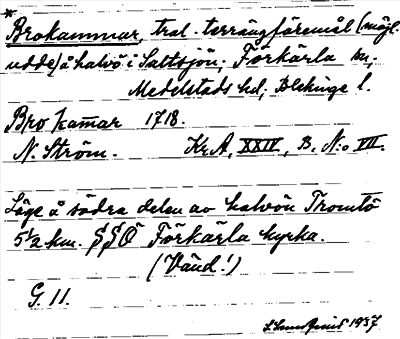 *
Brokammar, trol. terrängföremål (möjl.
udde) å halvö i Saltsjön; Förkärla sn,
Medelstads hd, Blekinge l.
Bro kamar 1718.
N. Ström. KrA, XXIV, B, N:o VII.
Läge å södra delen av halvön Tromtö
5 1/2 km. SSÖ Förkärla kyrka.
(Vänd!)
G. 11.
1937